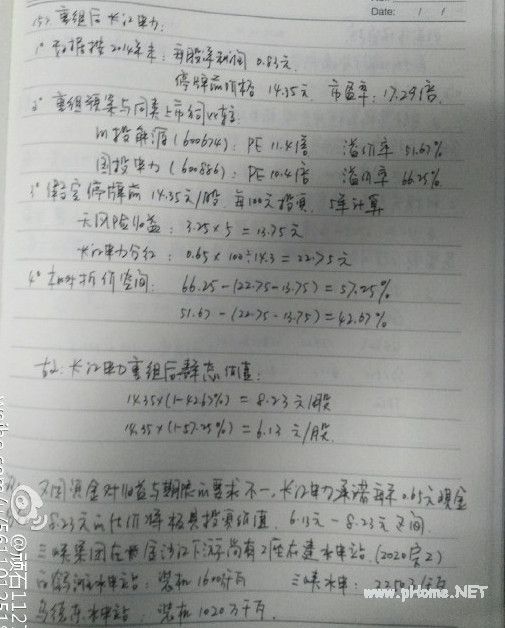 Date: / /
157. 重组后长江电力:
1° 数据按2014年末: 每股净利润 0.83元.
停牌前价格 14.35元. 市盈率: 17.29倍.
2° 重组预案与同类上市公司比较:
川投能源(600674): PE 11.4倍 溢价率 51.67%
国投电力(600886): PE 10.4倍 溢价率 66.25%
3° 假定停牌前 14.35元/股, 每100元投资, 5年计算
无风险收益: 3.25×5=13.75元
长江电力分红: 0.65×100÷14.3=22.75元
4° 折价空间: 66.25-(22.75-13.75)=57.25%
51.67-(22.75-13.75)=42.67%
故: 长江电力重组后静态估值:
14.35×(1-42.67%)=8.23元/股
14.35×(1-57.25%)=6.13元/股.
不同资金对收益与期限的要求不一, 长江电力承诺每年0.65元现金
8.23元的估价将极具投资价值. 6.13元-8.23元之间.
三峡集团在金沙江下游尚有2座在建水电站.(2020完)
白鹤滩水电站: 装机1600万千瓦 三峡水电: 2250万千瓦
乌东德水电站: 装机1020万千瓦.
www.pHome.NET
weibo.com/u/7561101251
@顽石112